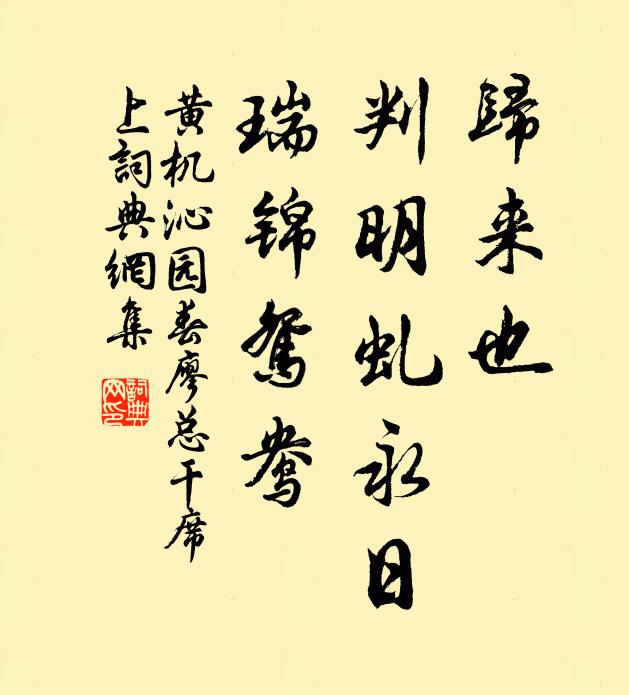 歸来也
判明虬永日
瑞锦鸳鸯
黄机沁园春廖总干席
上詞典網集
詞典
网印